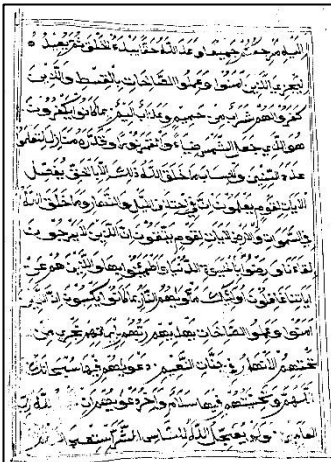 اليه مرجعكم جميعا وعد الله حقا انه يبدؤ الخلق ثم يعيده
ليجزي الذين آمنوا وعملوا الصالحات بالقسط والذين
كفروا لهم شراب من حميم وعذاب أليم بما كانوا يكفرون
هو الذي جعل الشمس ضياء والقمر نورا وقدره منازل لتعلموا
عدد السنين والحساب ما خلق الله ذلك إلا بالحق يفصل
الآيات لقوم يعلمون إن في اختلاف الليل والنهار وما خلق الله
في السموات والأرض لآيات لقوم يتقون إن الذين لا يرجون
لقاءنا ورضوا بالحيوة الدنيا واطمأنوا بها والذين هم عن
آياتنا غافلون أولئك مأويهم النار بما كانوا يكسبون إن الذين
آمنوا وعملوا الصالحات يهديهم ربهم بإيمانهم تجري من
تحتهم الأنهار في جنات النعيم دعويهم فيها سبحانك
اللهم وتحيتهم فيها سلام وآخر دعويهم أن الحمد لله رب
العالمين ولو يعجل الله للناس الشر استعجالهم